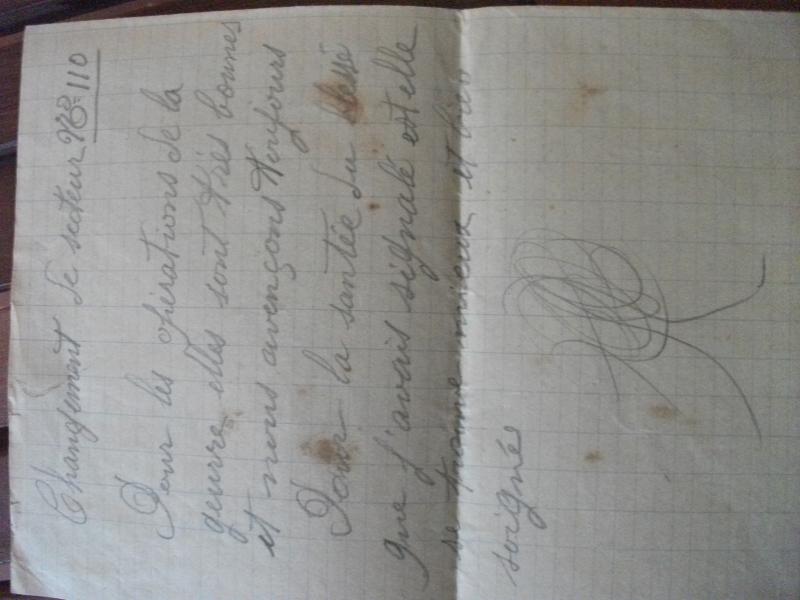 Changement de secteur No 110
Pour les opérations de la
geurre elles sont trés bonnes
et nous avençons toujours
Pour la santée du blessé
que j'avais signalé est elle
se trouve mieux et bien
soigné